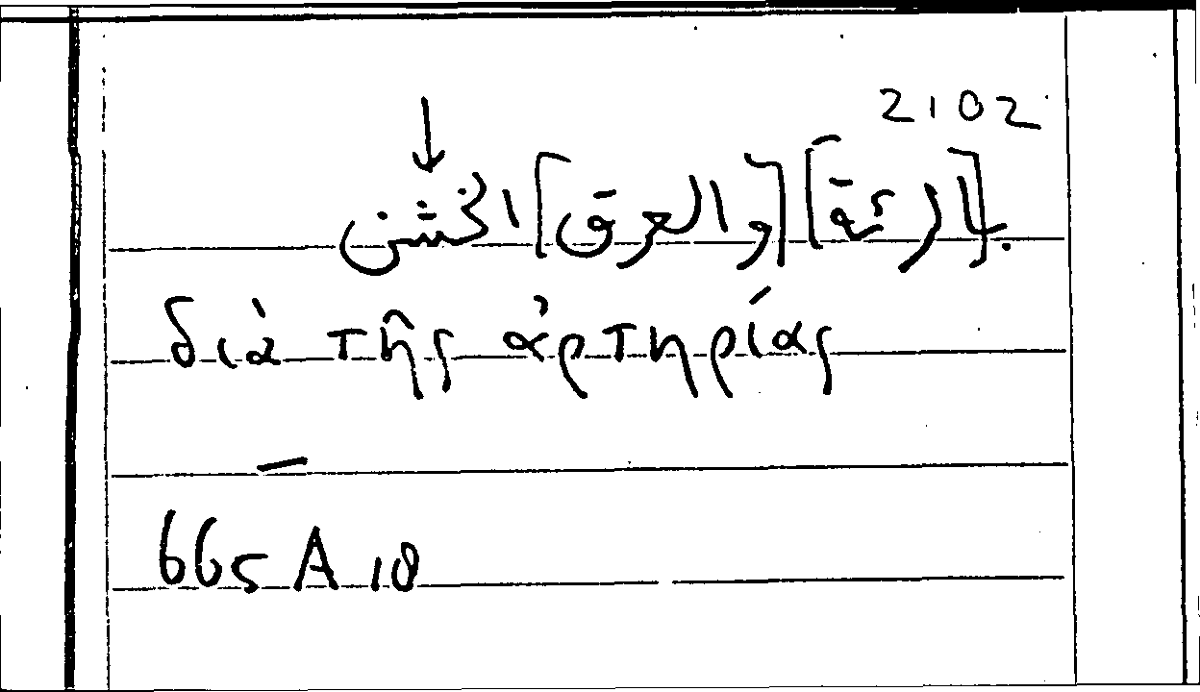 2102
بالـ[ـرئة] [والعرق] الخشن
διὰ τῆς ἀρτηρίας
665 A 18